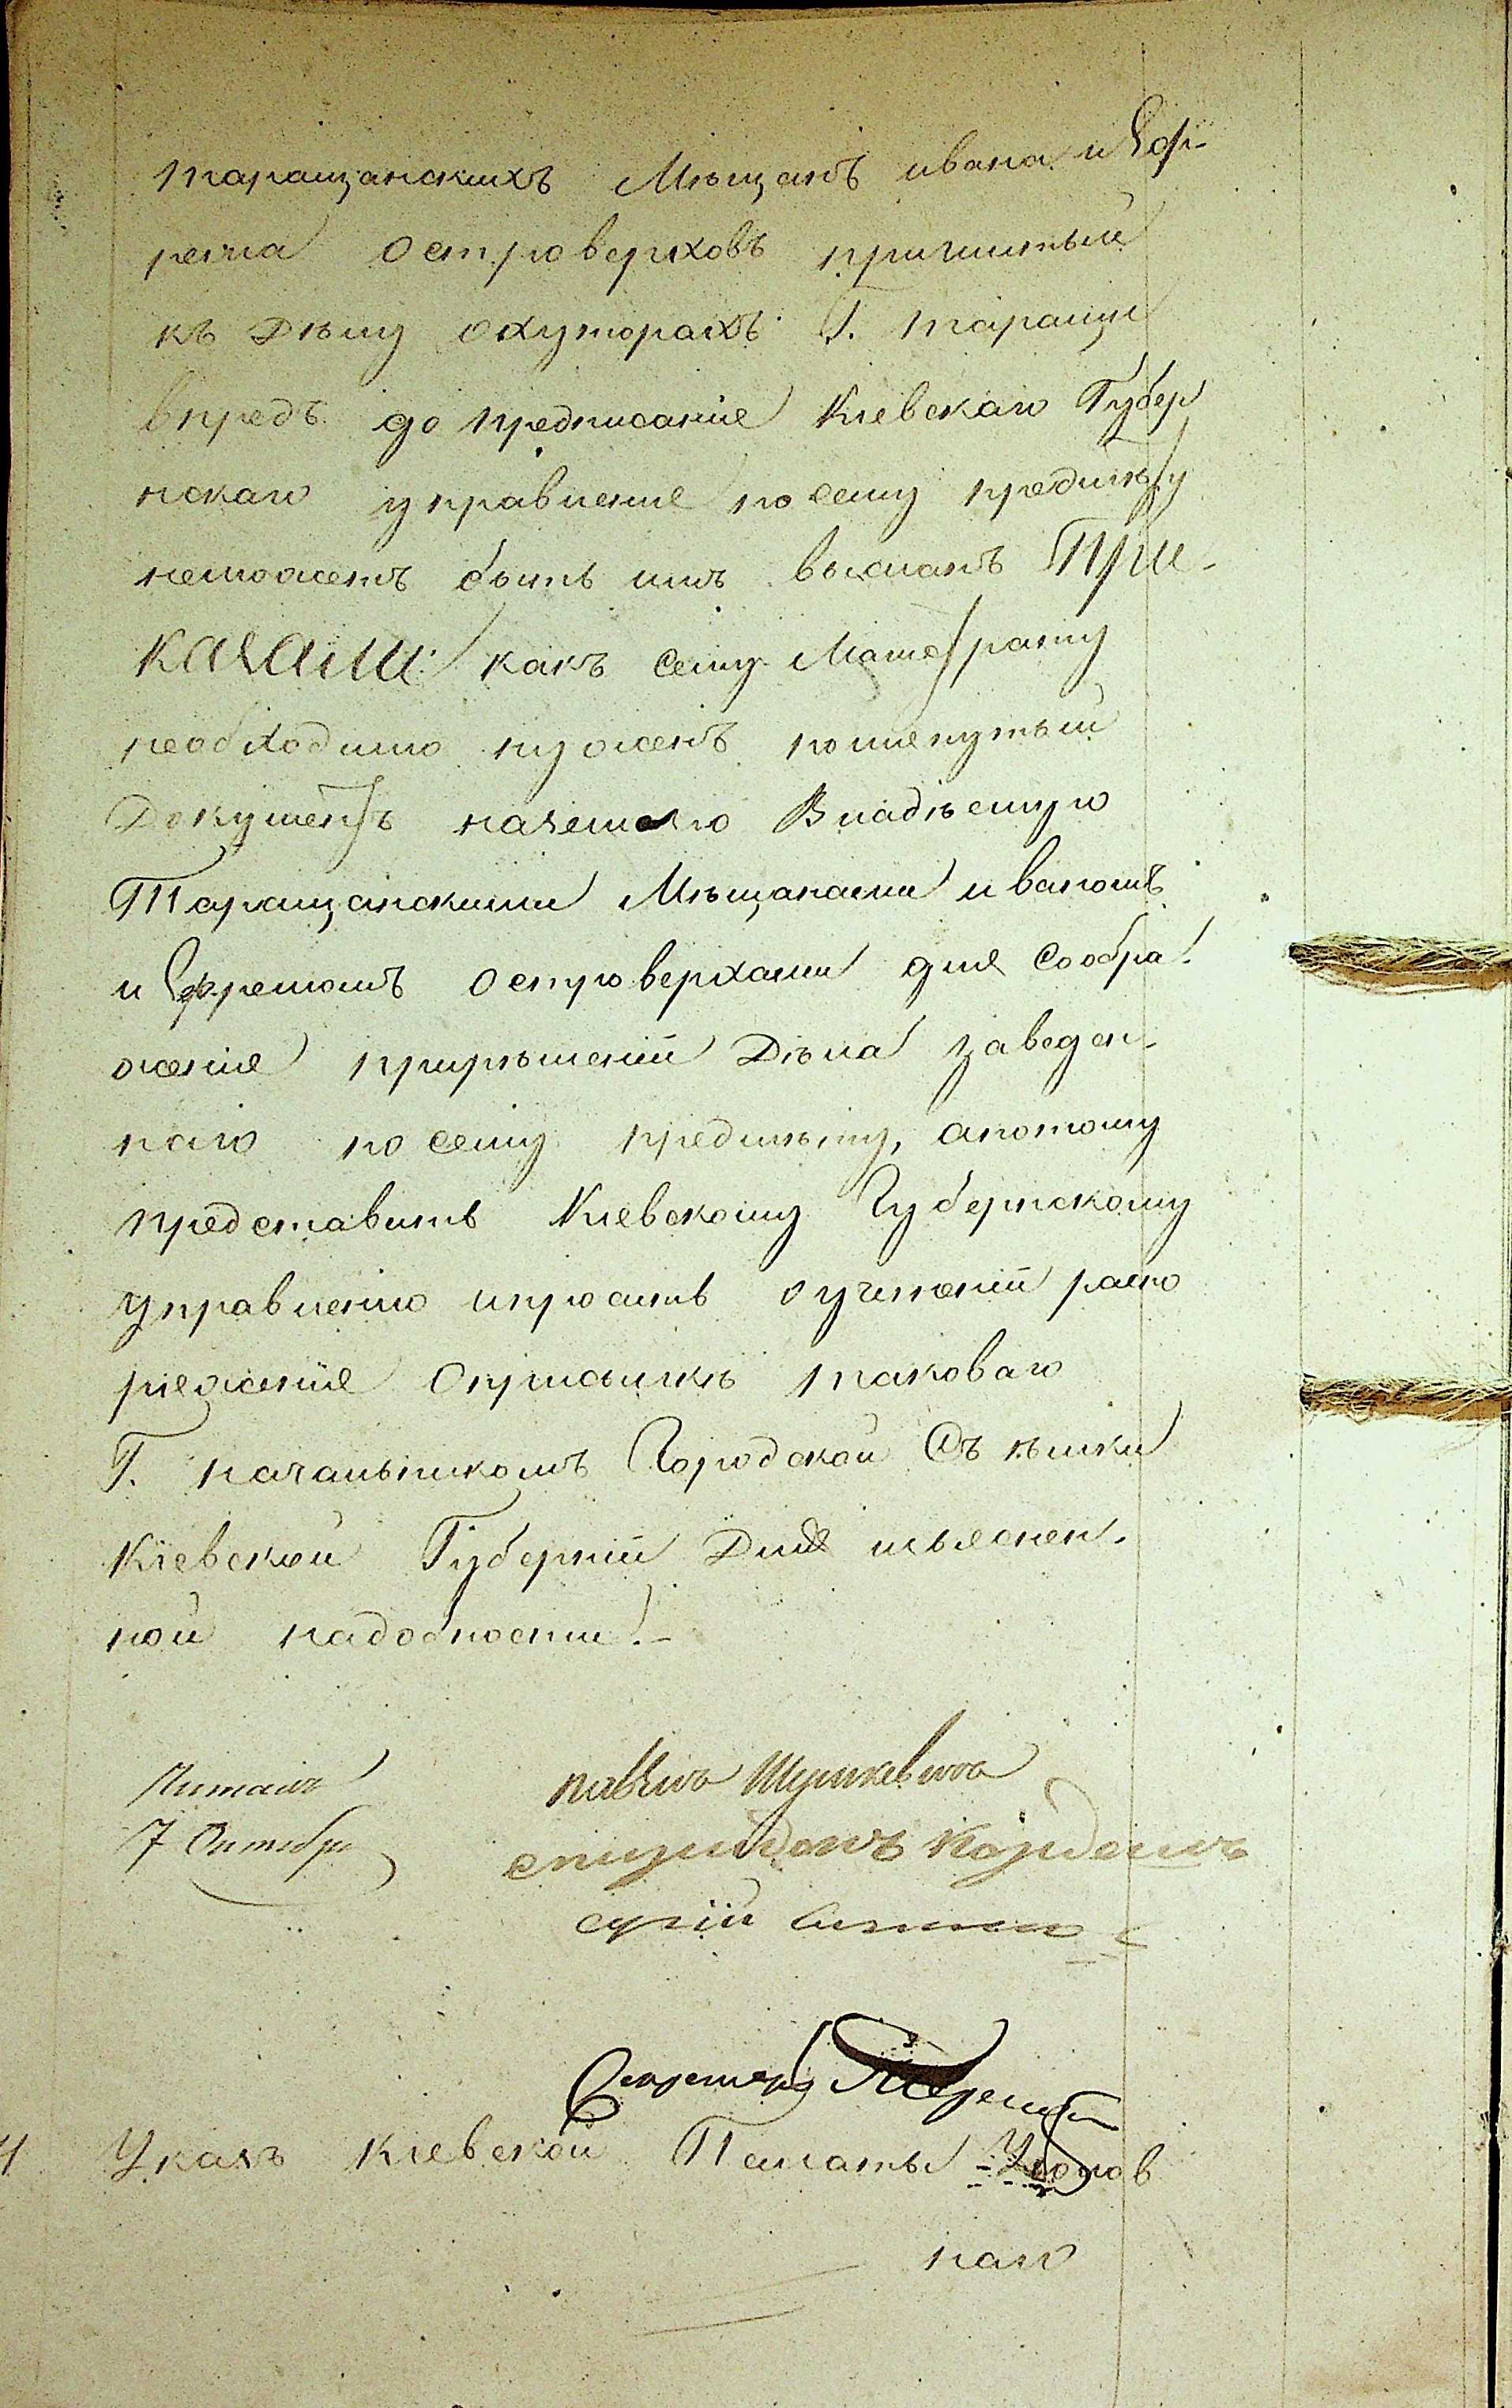 таращанскихъ Мѣщанъ ивана и Еф-
рема островерховъ пришитый
къ Дѣлу охуторахъ Г. таращи
впредъ до предписаніе Кіевскаго Губер
нскаго управленіе посему предмѣту
неможетъ быть имъ высланъ При-
казали: какъ сему Магистрату
необходимо нуженъ помянутый
Документъ наземлю Владѣемую
Таращанскими Мѣщанами иваномъ
и Ефремомъ островерхами для Сообра-
женія прирѣшеніи Дѣла заведен-
наго посему предмѣту, апотому
представить Кіевскому Губернскому
управленію ипросить оучиненіи распо
ряженіе Оприсылкѣ таковаго
Г. начальникомъ Городской Съемки
Кіевской Губерніи Для изъяснен-
ной надобности.-
Читалъ
7 Октября
Секретарь
Указъ Кіевской Палаты Уголов
наго